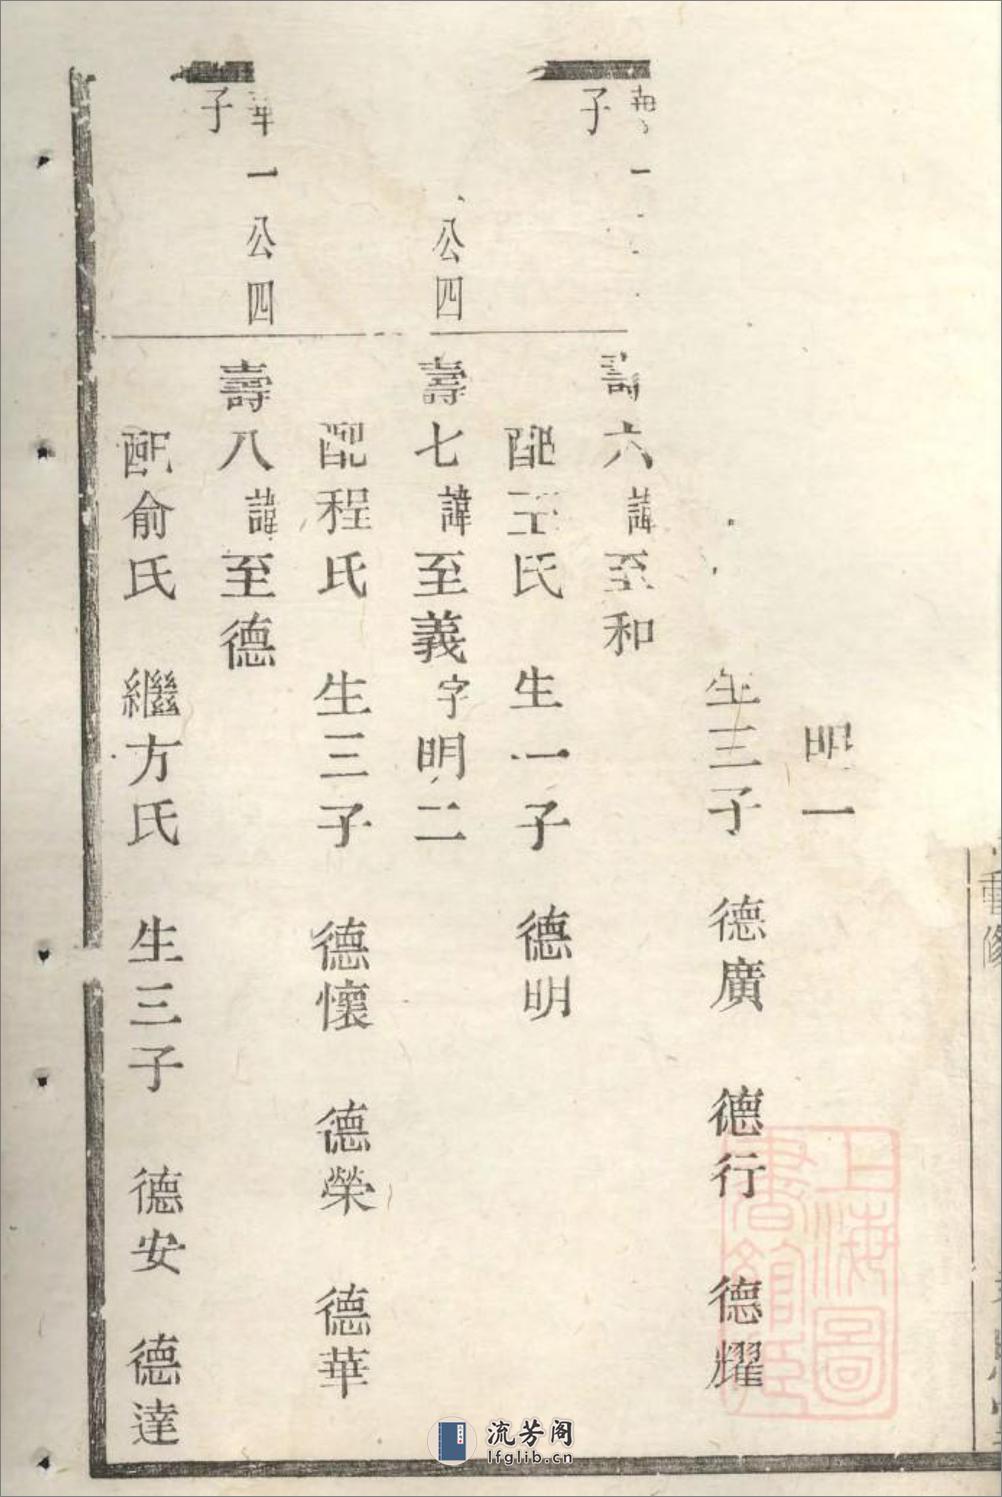 重修
明一
生三子 德廣 德行 德耀
壽六諱至和
子
配王氏 生一子 德明
公四
壽七諱至義字明二
配程氏 生三子 德懷 德榮 德華
一公四
子
壽八諱至德
配俞氏 繼方氏 生三子 德安 德達
上海圖
書館藏
流芳阁
lfglib.cn